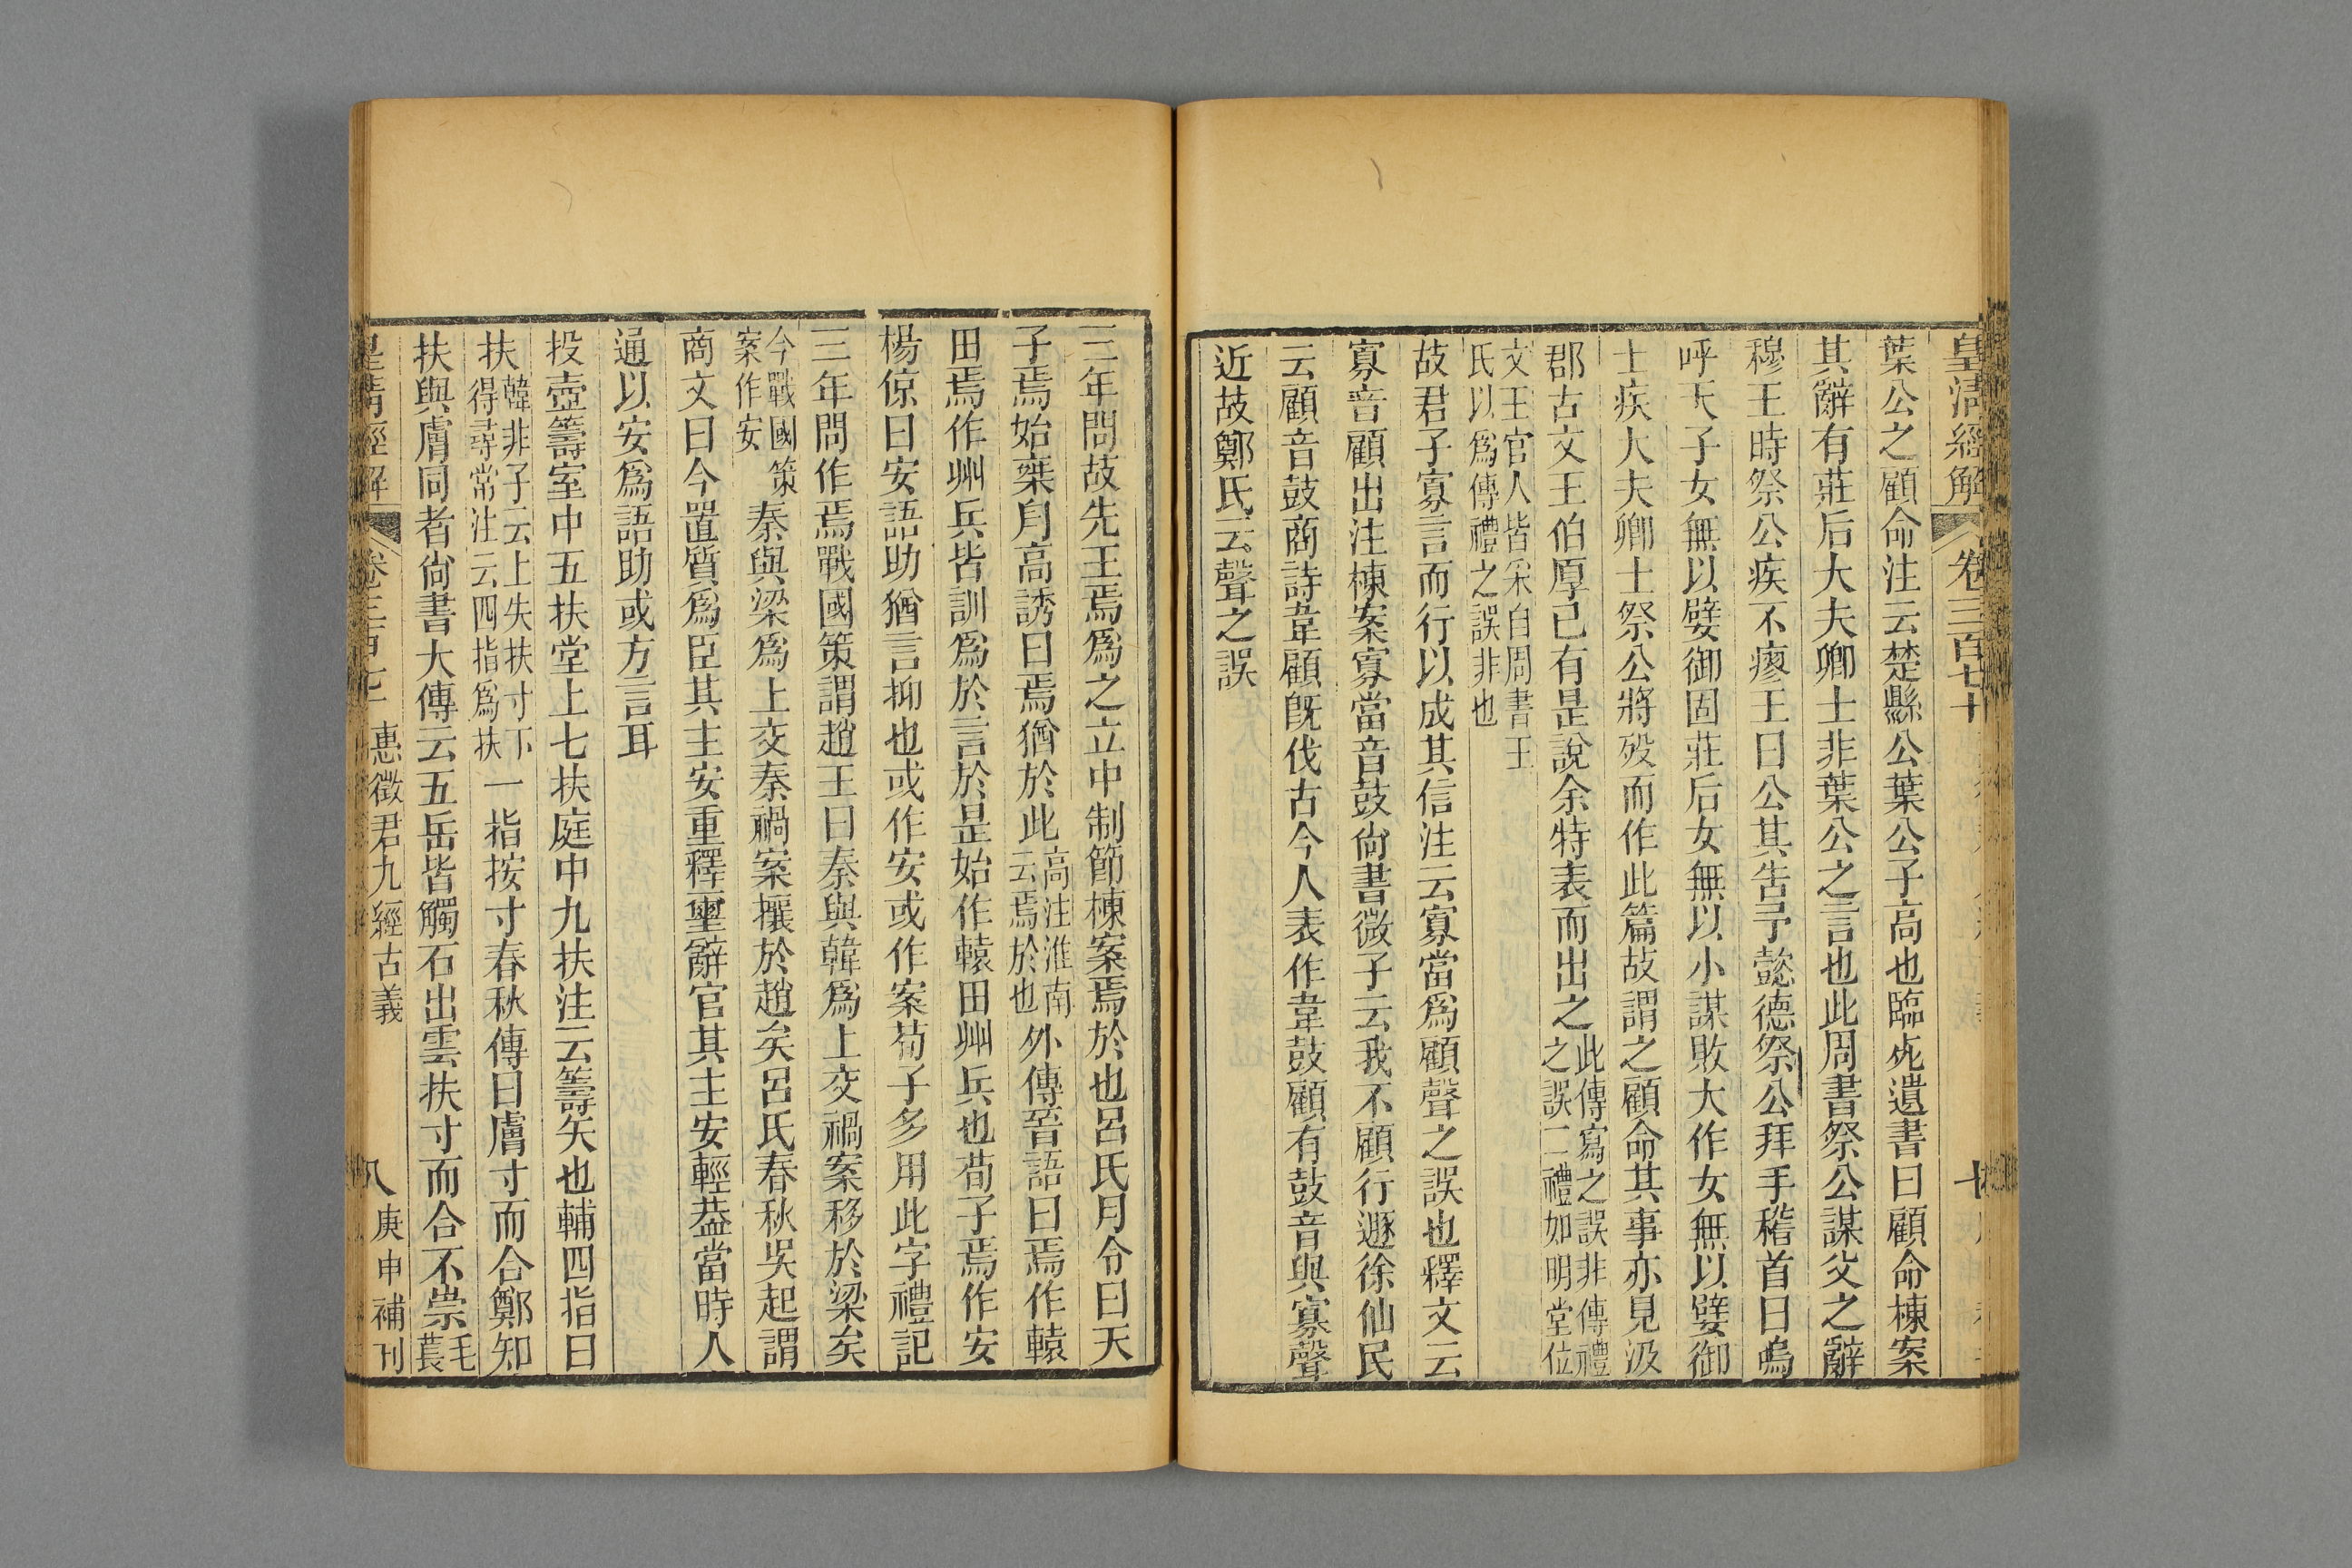 皇清經解 卷三百七十
葉公之顧命注云楚縣公葉公子高也臨死遺書曰顧命棟案
其辭有莊后大夫卿士非葉公之言也此周書祭公謀父之辭
穆王時祭公疾不瘳王曰公其告予懿德祭公拜手稽首曰嗚
呼天子女無以嬖御固莊后女無以小謀敗大作女無以嬖御
士疾大夫卿士祭公將歿而作此篇故謂之顧命其事亦見汲
郡古文王伯厚已有是說余特表而出之此傳寫之誤非傳禮之誤二禮如明堂位
文王官人皆采自周書王氏以爲傳禮之誤非也
故君子寡言而行以成其信注云寡當爲顧聲之誤也釋文云
寡音顧出注棟案寡當音鼓尙書微子云我不顧行遯徐仙民
云顧音鼓商詩韋顧旣伐古今人表作韋鼓顧有鼓音與寡聲
近故鄭氏云聲之誤
三年問故先王焉爲之立中制節棟案焉於也呂氏月令曰天
子焉始乘舟高誘曰焉猶於此高注淮南云焉於也外傳晉語曰焉作轅
田焉作州兵皆訓爲於言於是始作轅田州兵也荀子焉作安
楊倞曰安語助猶言抑也或作安或作案荀子多用此字禮記
三年問作焉戰國策謂趙王曰秦與韓爲上交禍案移於梁矣
今戰國策案作安秦與梁爲上交秦禍案攘於趙矣呂氏春秋吳起謂
商文曰今置質爲臣其主安重釋璽辭官其主安輕葢當時人
通以安爲語助或方言耳
投壺籌室中五扶堂上七扶庭中九扶注云籌矢也輔四指曰
扶韓非子云上失扶寸下得尋常注云四指爲扶一指按寸春秋傳曰膚寸而合鄭知
扶與膚同者尙書大傳云五岳皆觸石出雲扶寸而合不崇毛萇
皇清經解 卷三百七十 惠徵君九經古義 八 庚申補刊